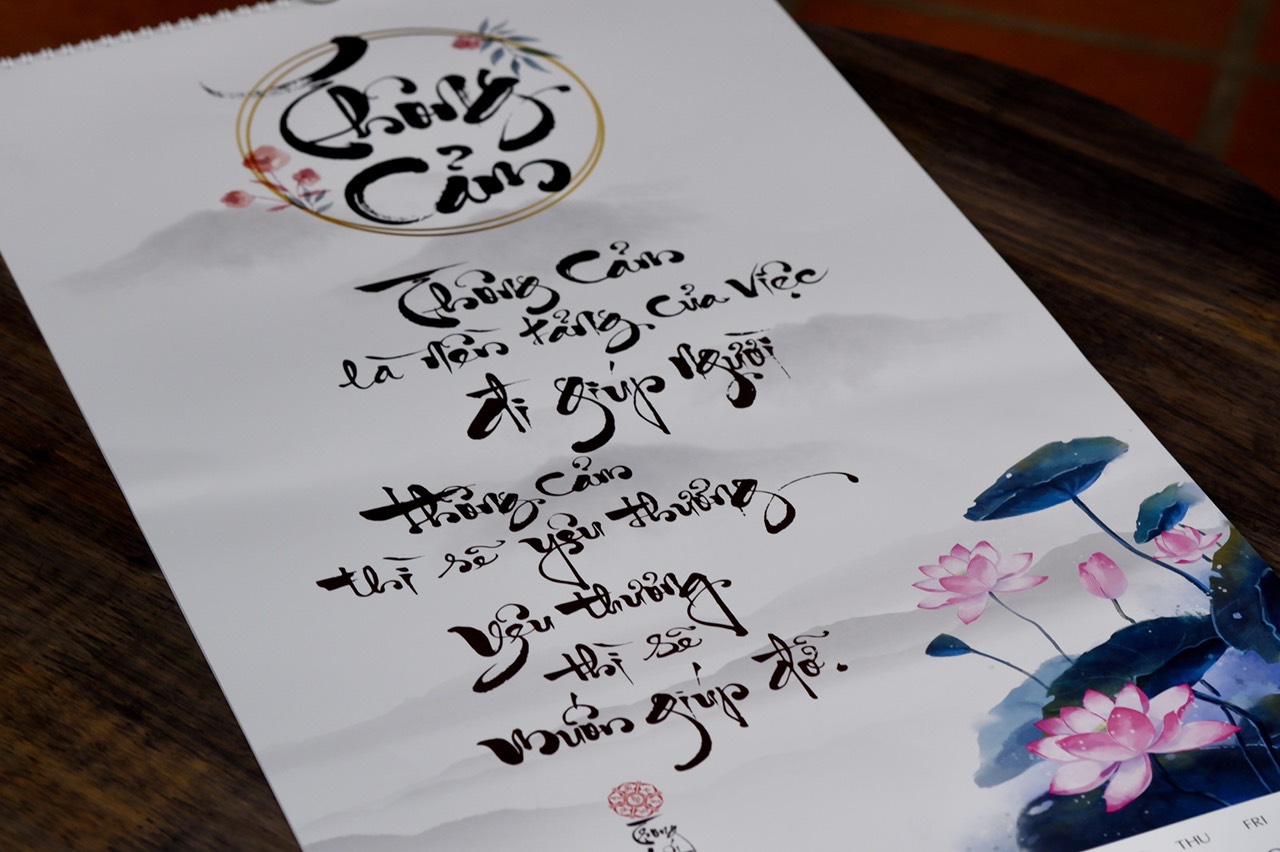 Thông
Cảm
Thông Cảm
là nền tảng của việc
đi giúp người
Thông cảm
thì sẽ yêu thương
yêu thương
thì sẽ
muốn giúp đỡ.
Thông
THU FRI